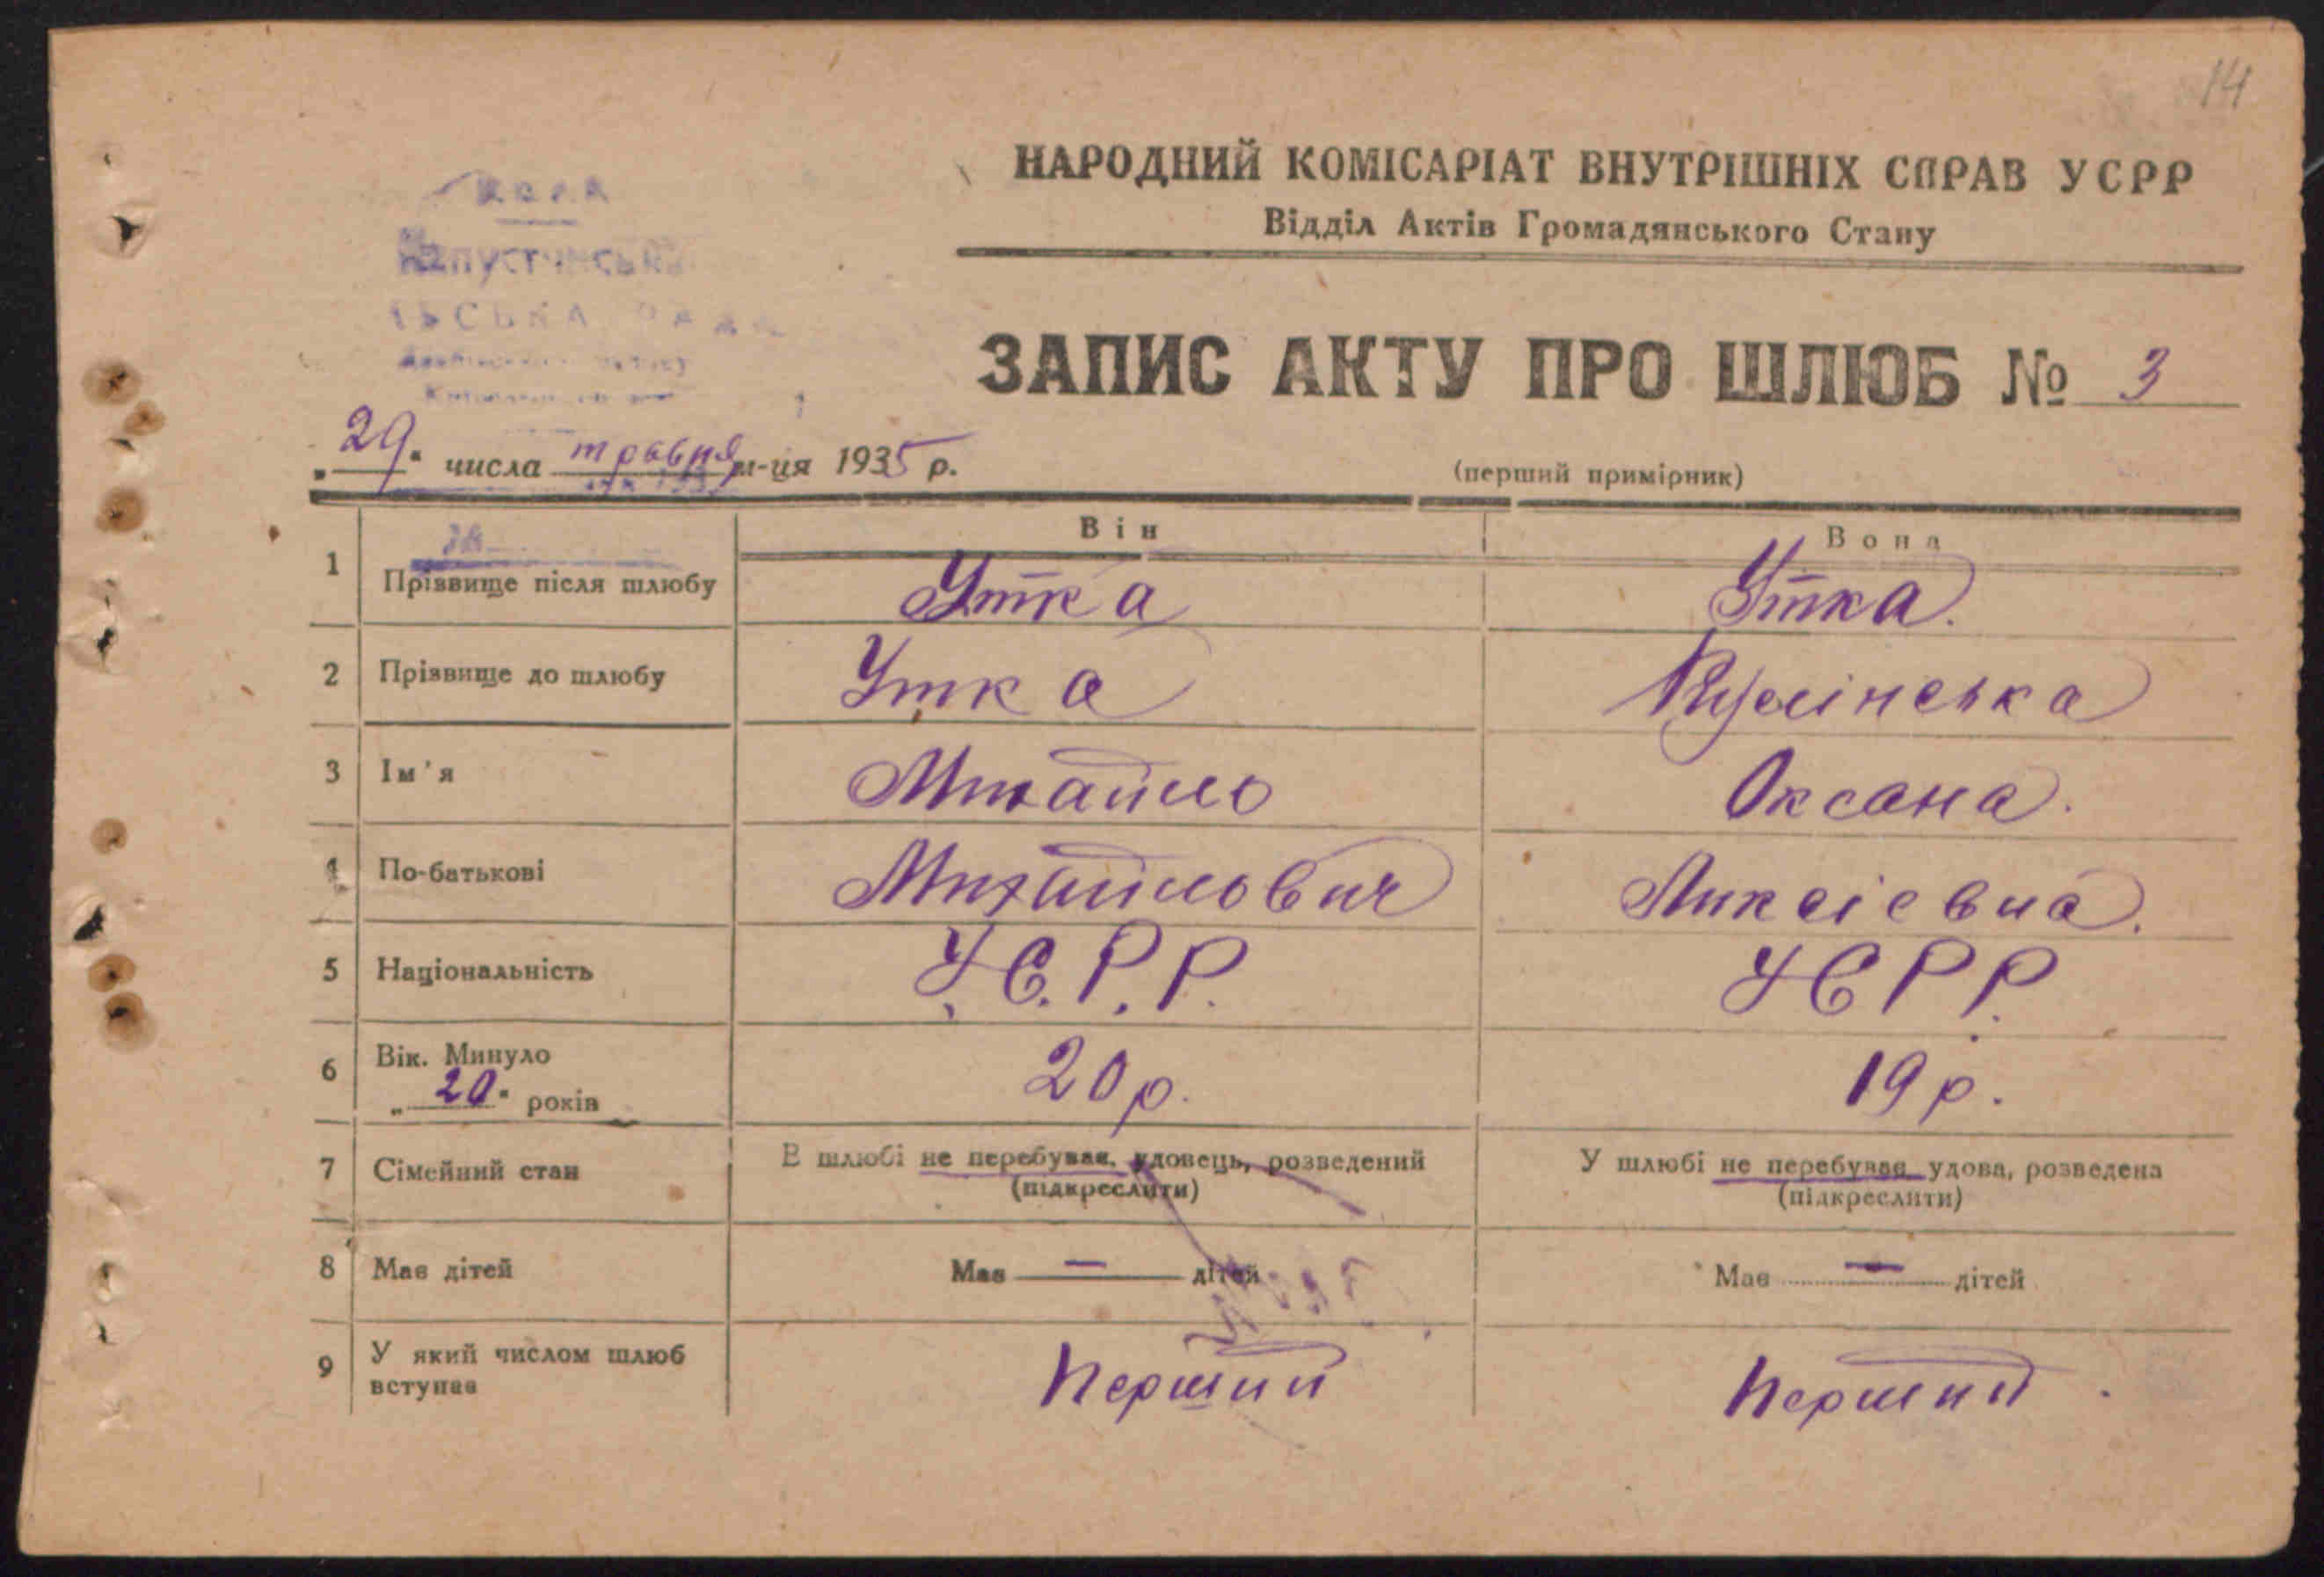 14
НАРОДНИЙ КОМІСАРІАТ ВНУТРІШНІХ СПРАВ УСРР
Відділ Актів Громадянського Стану
ЗАПИС АКТУ ПРО ШЛЮБ № 3
„29“ числа травня м-ця 1935 р.
(перший примірник)
Він Вона
1 Прізвище після шлюбу Утка Утка.
2 Прізвище до шлюбу Утка
3 Ім'я Михайло Оксана.
4 По-батькові Михайлович
5 Національність У.С.Р.Р. УСРР.
6 Вік. Минуло „20“ років 20 р. 19 р.
7 Сімейний стан В шлюбі не перебував, удовець, розведений (підкреслити) У шлюбі не перебував удова, розведена (підкреслити)
8 Має дітей Має — дітей Має — дітей
9 У який числом шлюб вступає Перший Перший.